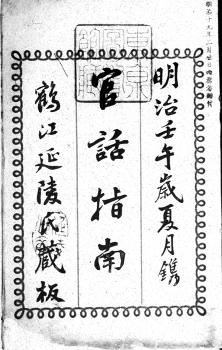 明治壬午歲夏月鐫
官話指南
鶴江延陵氏藏板